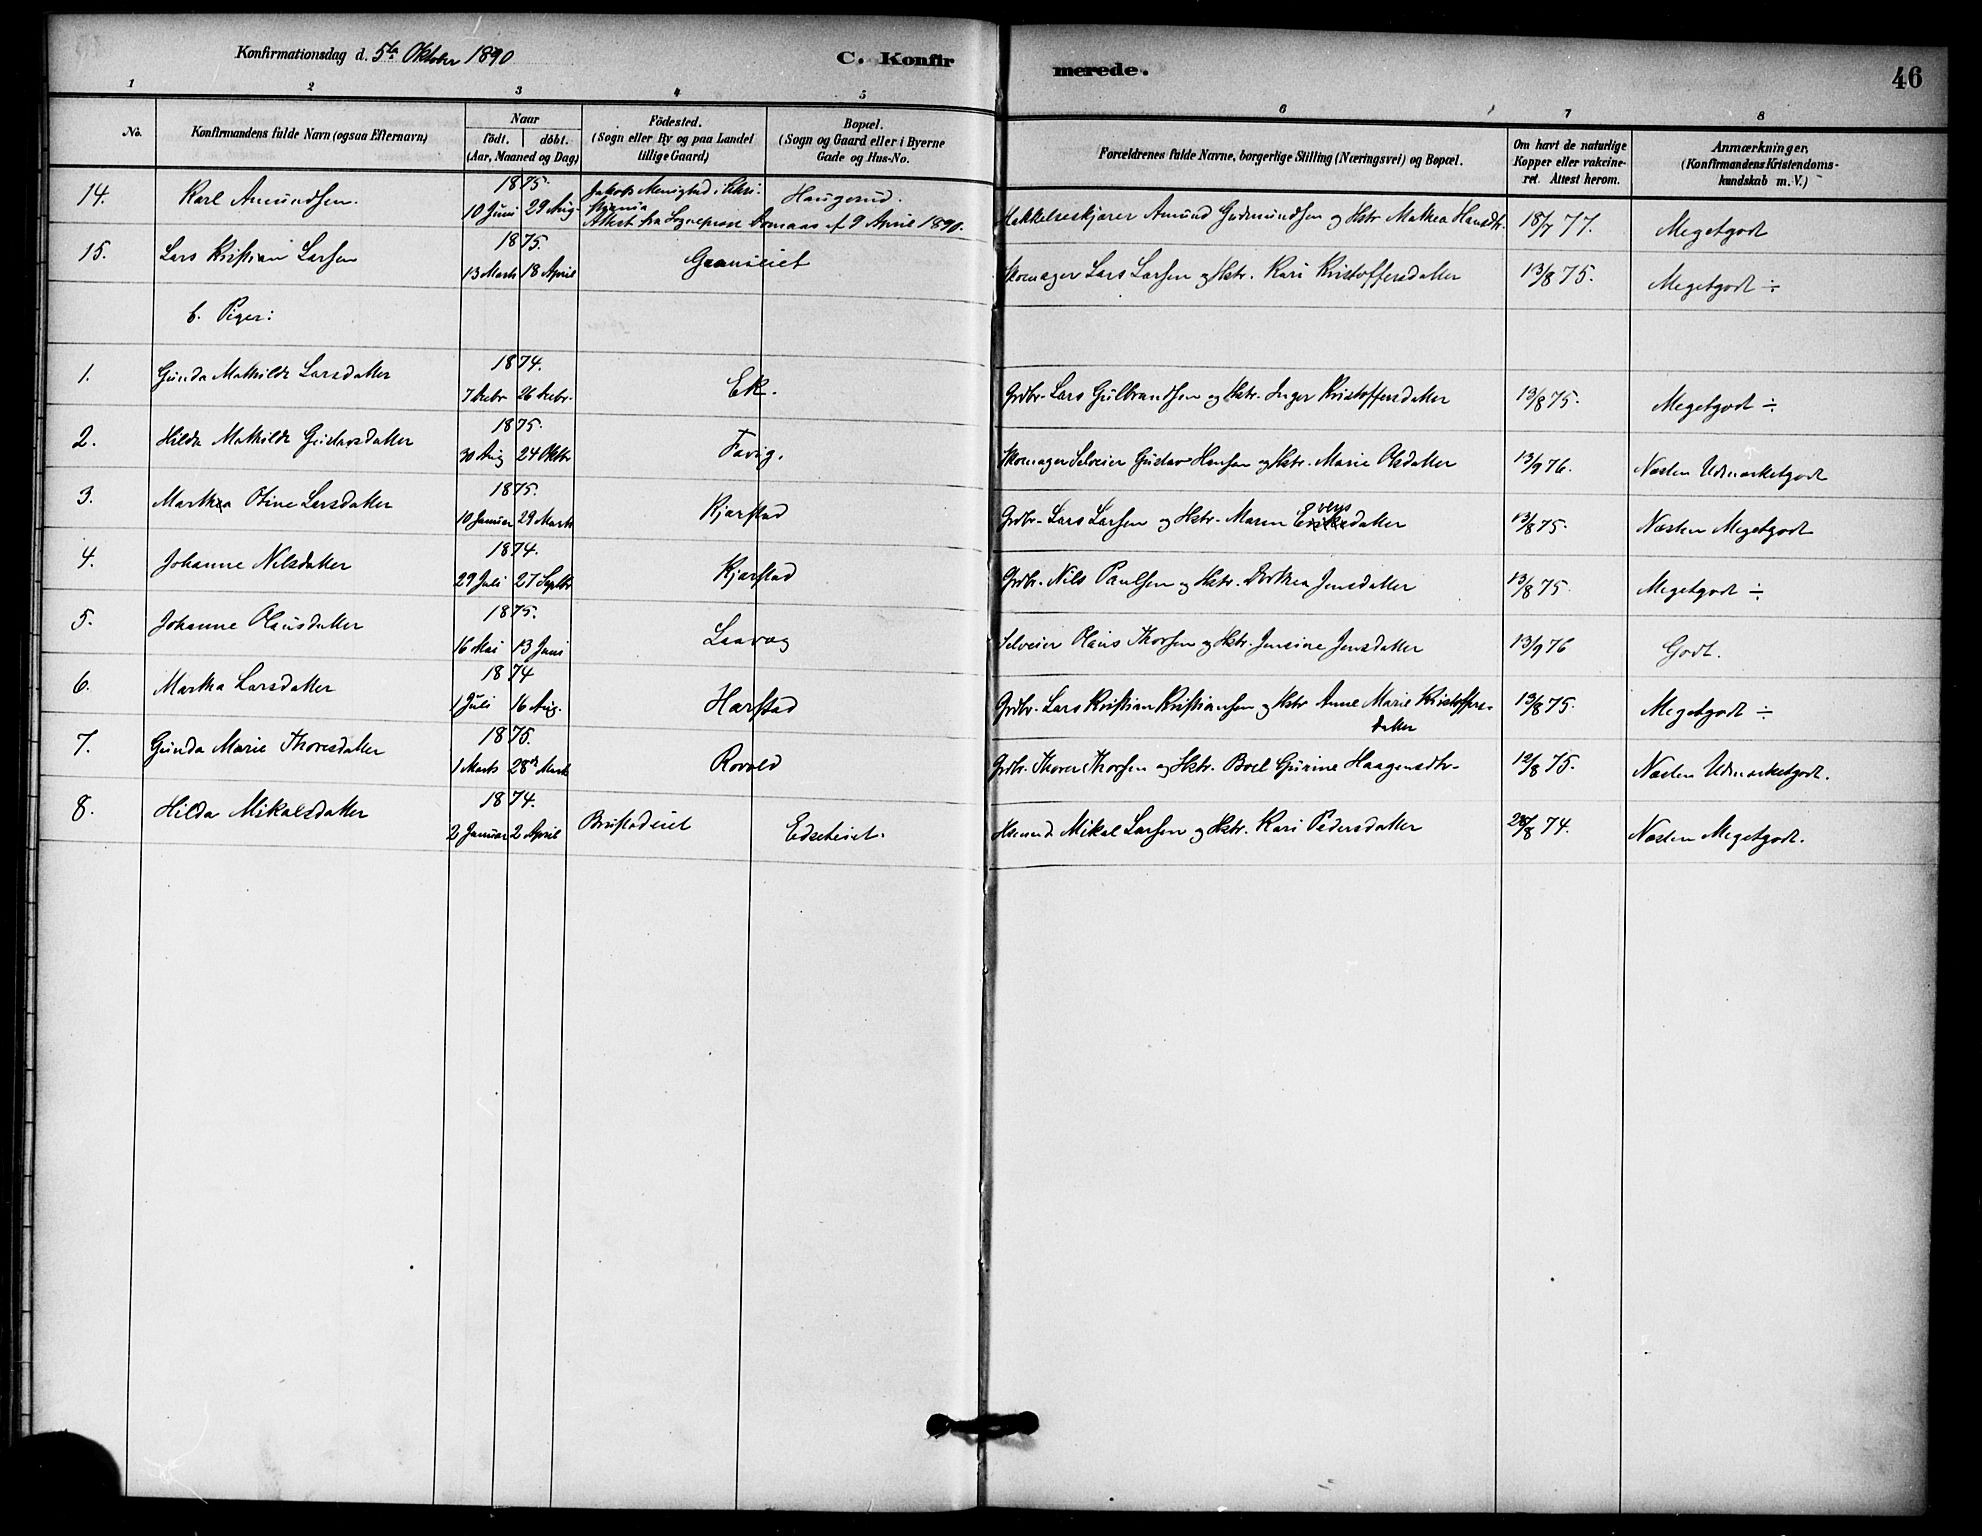 Konfirmationsdag d. 5te Oktober 1890
C. Konfir merede.
46
1 2 3 4 5 6 7 8
No.
Konfirmandens fulde Navn (ogsaa Efternavn)
Naar
födt. döbt.
(Aar, Maaned og Dag)
Födested.
(Sogn eller By og paa Landet
tillige Gaard)
Bopæl.
(Sogn og Gaard eller i Byerne
Gade og Hus-No.
Forældrenes fulde Navne, borgerlige Stilling (Næringsvei) og Bopæl.
Om havt de naturlige
Kopper eller vakcine-
ret. Attest herom.
Anmærkninger,
(Konfirmandens Kristendoms-
kundskab m. V.)
1875.
14. Karl Amundsen. 10 Juni 29 Aug. Jakobs Menighed i Kri-
stiania Haugerud. Hakkelseskjærer Amund Gudmundsen og Hstr Mathea Hansdtr. 18/7 77. Megetgodt
Attest fra Sognepræst Bomaas af 9 April 1890.
1875.
15. Lars Kristian Larsen 13 Marts 18 April Granseiet Skomager Lars Larsen og Hstr. Kari Kristoffersdatter 13/8 75. Megetgodt ÷
b. Piger:
1874.
1. Gunda Mathilde Larsdatter 7 Febr 26 Febr. Ek. Grdbr. Lars Gulbrandsen og Hstr. Inger Kristoffersdatter 13/8 75. Megetgodt ÷
1875.
2. Hilda Mathilde Gustavsdatter 30 Aug 24 Oktbr Favig. Skomager Selveier Gustav Hansen og Hstr. Marie Olsdatter 13/9 76. Næsten Udmærketgodt
1875.
3. Marthea Otine Larsdatter 10 Januar 29 Marts Kjærstad Grdbr. Lars Larsen og Hstr. Maren Eversdatter 13/8 75. Næsten Megetgodt
1874.
4. Johanne Nilsdatter 29 Juli 27 Septbr Kjærstad Grdbr. Nils Paulsen og Hstr. Dorthea Jensdatter 13/8 75. Megetgodt ÷
1875.
5. Johanne Olausdatter 16 Mai 13 Juni Laavag Selveier Olaus Thorsen og Hstr. Jensine Jensdatter 13/9 76 Godt.
1874
6. Martha Larsdatter 1 Juli 16 Aug. Harstad Grdbr. Lars Kristian Kristiansen og Hstr Anne Marie Kristoffers-
datter 13/8 75. Megetgodt ÷
1875.
7. Gunda Marie Thoresdatter 1 Marts 28de Marts Rovold Grdbr. Thorer Thorsen og Hstr. Boel Gurine Haagensdtr. 12/8 75. Næsten Udmærketgodt.
1874.
8. Hilda Mikalsdatter 2 Januar 2 April Brustadeiet Edseteiet. Husmd. Mikal Larsen og Hstr. Kari Pedersdatter 28/8 74. Næsten Megetgodt.